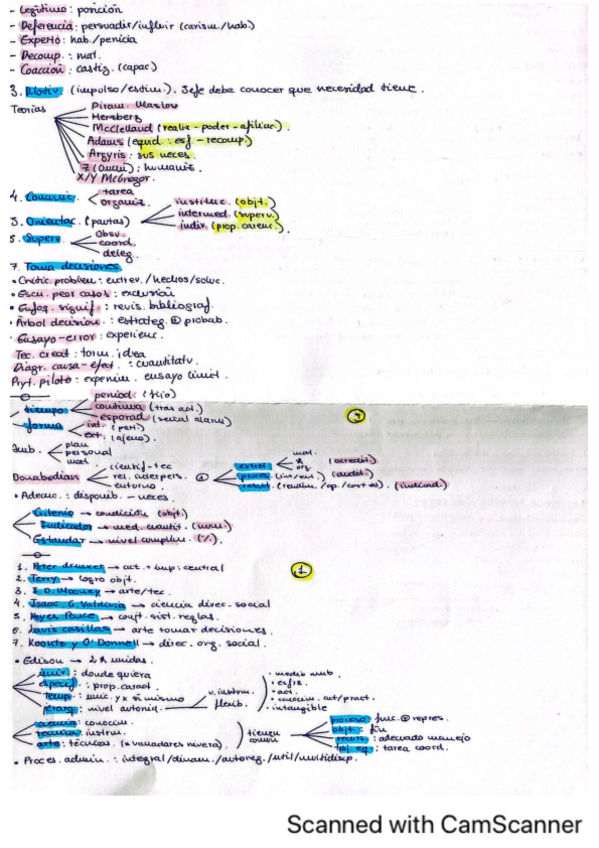 - Legítimo: posición
- Deferencia: persuadir/influir (carism./hab.)
- Experto: hab./pericia
- Recomp.: mat.
- Coacción: castig. (capac.)
3. Motiv. (impulso/estím.). Jefe debe conocer que necesidad tiene.
Teorías
Piram. Maslow
Herzberg
McClelland (realiz-poder-afiliac.).
Adams (equid.: esf. - recomp.)
Argyris: sus neces.
Z (Ouchi); humanis.
X/Y McGregor.
4. Comunic.
tarea
organiz.
5. Orientac. (pautas)
instituc. (objt.)
intermed. (superv.)
indiv. (prop. carenc.)
5. Superv.
Obsv.
coord.
deleg.
7. Toma decisiones
• Crític. problem: entrev./hechos/soluc.
• Escu. peor casos: exclusión
• Enfoq. signif.: revis. bibliograf.
• Árbol decisión.: estrateg. probab.
• Ensayo-error: experienc.
Tec. creat: torm. idea
Diagr. causa-efect.: cuantitatv.
Pryt. piloto: experim. ensayo
tiempo
period. (fijo)
continua (tras act.)
esporad.
forma
int. (pert.)
ext. (ajeno).
Amb.
plan
personal
mat.
Donabedian
científ-tec
rel. interpers.
entorno
estruct.
mat.
org.
(acredit.)
proces. (audit.)
result. (indicad.)
• Adecuc.: disponib. - neces.
Criterio → condición (objt.)
Indicador → med. cuantit. (num.)
Estandar → nivel cumplim. (%)
1
1. Peter drucker → act. + imp: central
2. Terry → logro objt.
3. → arte/tec.
4. Isaac. G. Valdivia → ciencia direc. social
5. Reyes Ponce → conjt. sist. reglas.
6. casillas → arte tomar decisiones.
7. Koontz y O'Donnell → direc. org. social.
• Edison → 2 h unidas.
univ.: donde quiera
especif.: prop. caract.
temp.: unic. y x si mismo
jerarq.: nivel autorid.
v. instrum.
flexib.
• medio amb.
• esfrz.
• act.
• conocim. act/pract.
• intangible
ciencia: conocim.
tecnica: instrum.
arte: técnicas.
tienen común
proceso: func. repres.
objt.: fin
recurs: adecuado manejo
tbj. eq.: tarea coord.
• Proces. admin.: integral/dinam./autoreg./util/multidisp.
Scanned with CamScanner